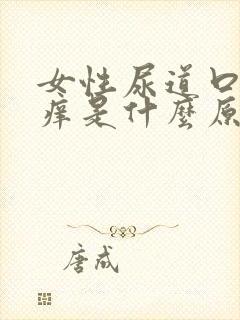 女性尿道口
痒是什麼原
唐成